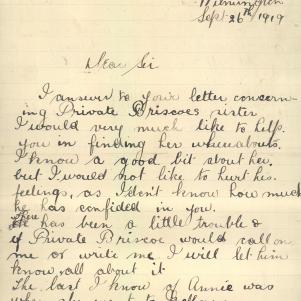 Wilmington
Sept. 26th, 1919
Dear Sir
I answer to your letter concern-
ing Private Briscoes sister
I would very much like to help.
you in finding her wheuabouts.
I know a good bit about her.
but I would not like to hurt his
feelings, as I don't know how much
he has confided in you.
There has been a little trouble &
if Private Briscoe would call on
me or write me I will let him
know all about it
The last I know of Annie was
when she went to